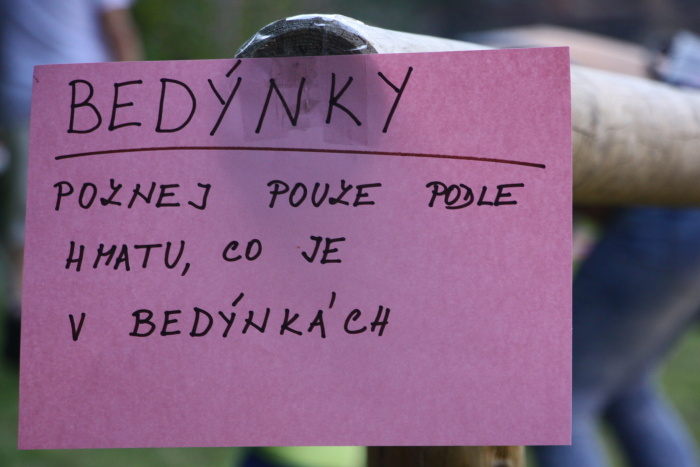 BEDÝNKY
POZNEJ POUZE PODLE
HMATU, CO JE
V BEDÝNKÁCH